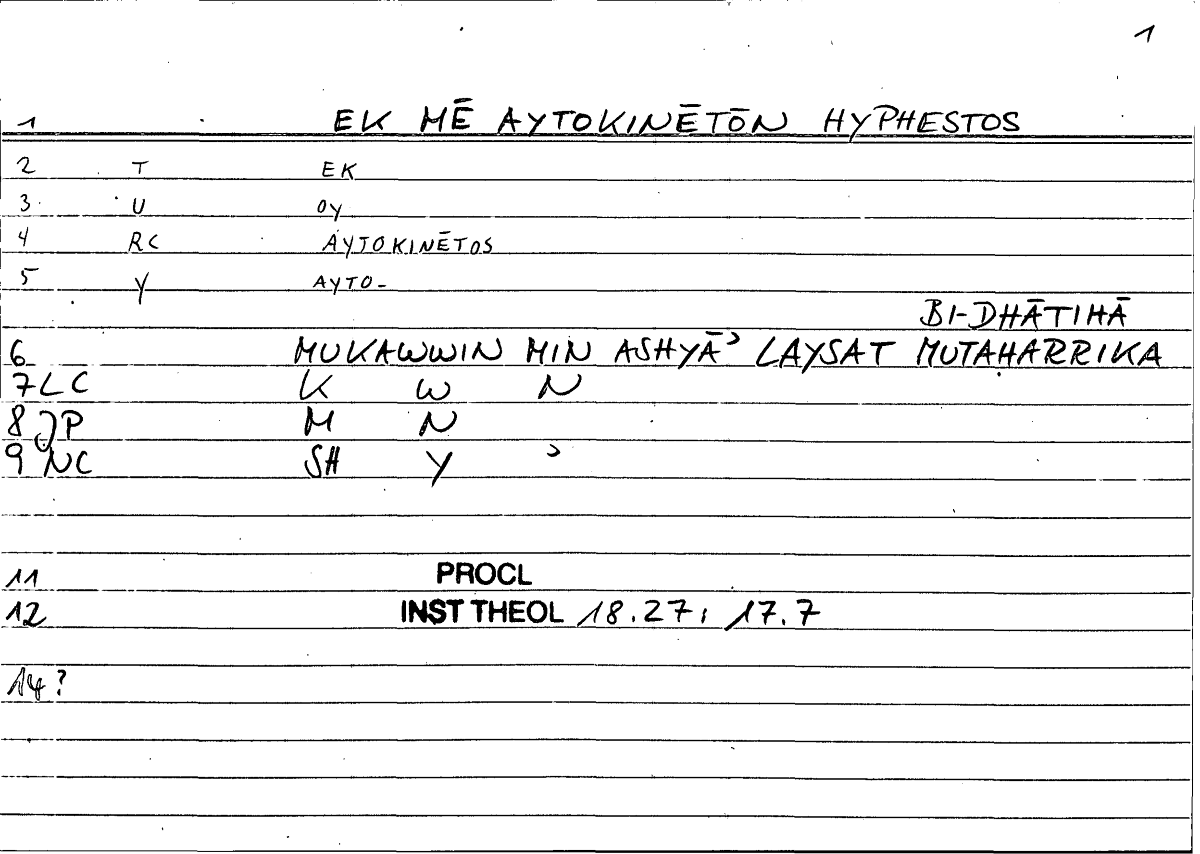 1
1 EK MĒ AYTOKINĒTŌN HYPHESTOS
2 T EK
3 U OY
4 RC AYTOKINĒTOS
5 Y AYTO-
BI-DHĀTIHĀ
6 MUKAWWIN MIN ASHYĀʾ LAYSAT MUTAḤARRIKA
7 LC K W N
8 JP M N
9 NC SH Y ʾ
11 PROCL
12 INST THEOL 18.27; 17.7
14?